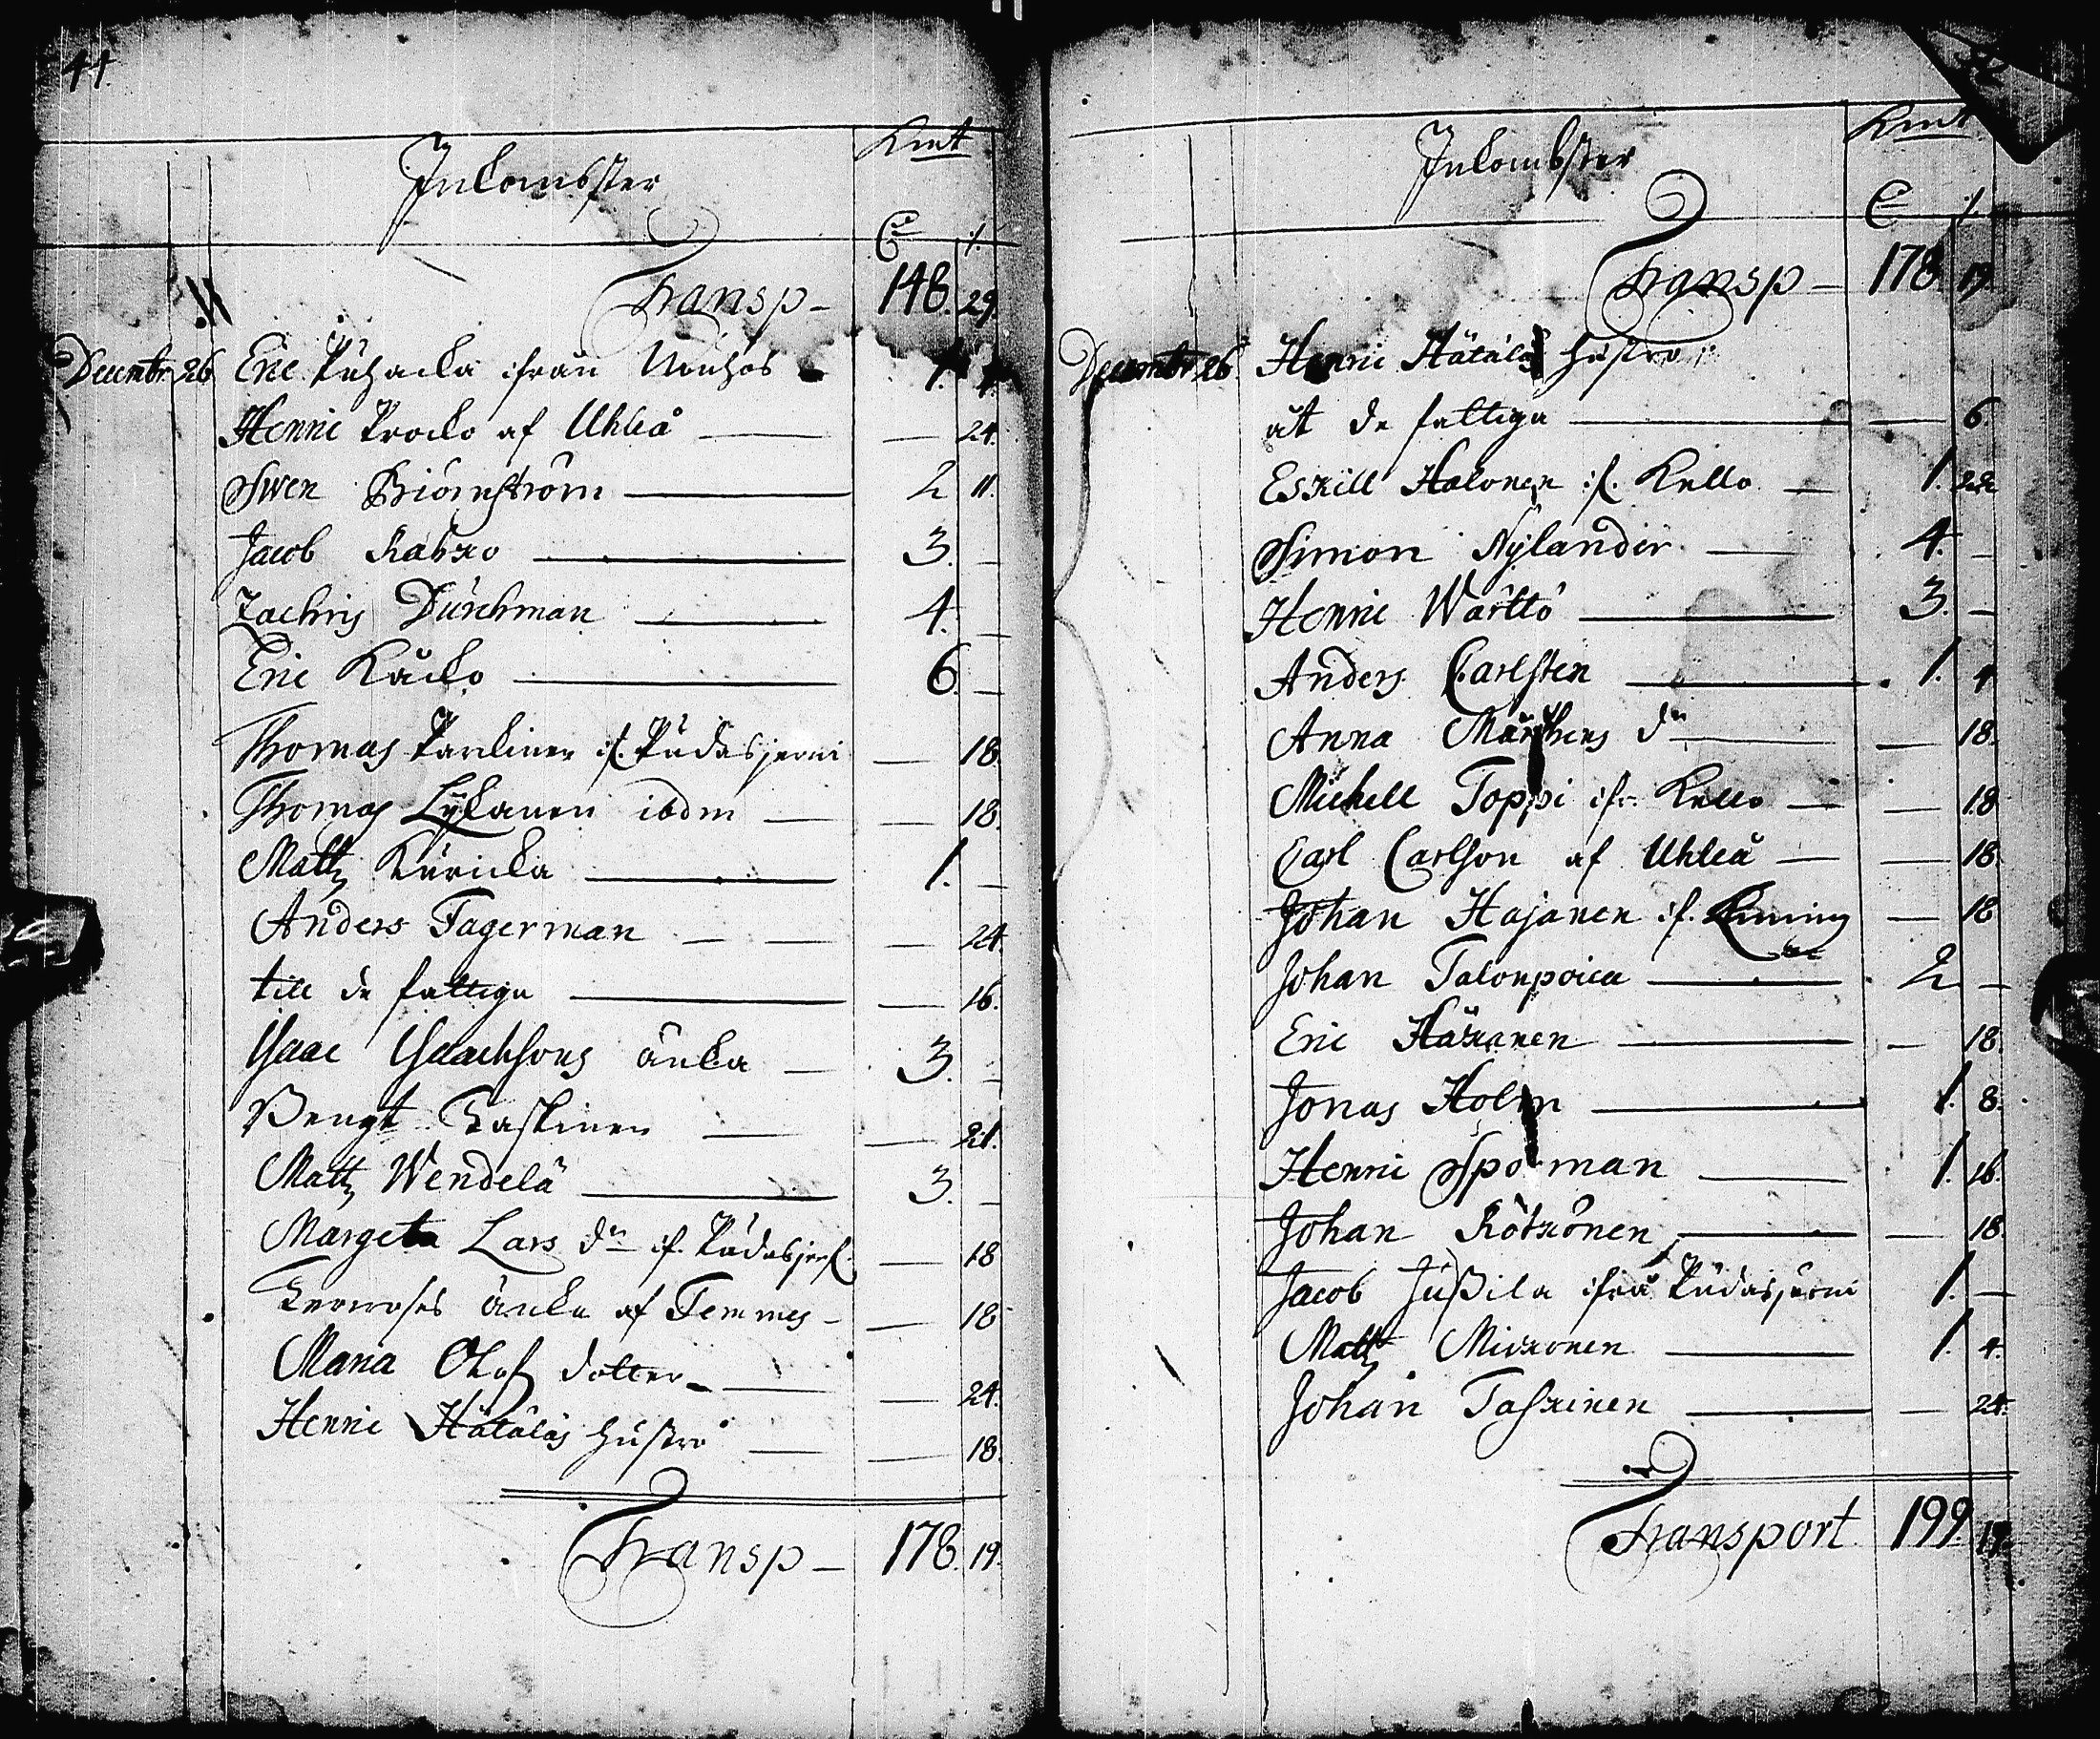 44.
Inkombster Kmt
Transp - 148. 29.
Decembr 26 Eric Puhacka ifrån Muhos 1. 4.
Henric Procko af Uhleå — 24.
Swen Biörnström 2 11.
Jacob Rabko 3. —
Zachris Durchman 4. —
Eric Kåcko 6. —
Thomas Parckinen if. Pudasjerwi — 18.
Thomas Lykanen ibdm — 18.
Matts Kuricka 1. —
Anders Fagerman — 24.
till de fattiga — 16.
Isaac Isaachsons änka 3. —
Bengt Taskinen — 21.
Matts Wendelä 3. —
Margeta Lars dr if. Pudasjerf. — 18
änka af Temmes — 18
Maria Olofs dotter — 24.
Henric Hätäläs hustro — 18.
Transp - 178. 19.
Inkombster Kmt
Transp - 178. 19.
Decembr 26. Henric Hätäläs hustro
åt de fattiga — 6.
Eskill Halonen if. Kello 1. 22
Simon Nylander 4. —
Henric Warttö 3. —
Anders Carlsten 1. 4
Anna Mårthens dr — 18.
Michell Toppi ifr Kello — 18
Carl Carlson af Uhleå — 18
Johan Hajanen if. Kiming — 18
Johan Talonpoica 2 —
Eric Häkanen — 18.
Jonas Holm 1. 8.
Henric Sporman 1. 16.
Johan Rötkönen — 18.
Jacob Jußila ifrå Pudasjerwi 1. —
Matts Mickonen 1. 4.
Johan Taskinen — 24.
Transport 199. 19.